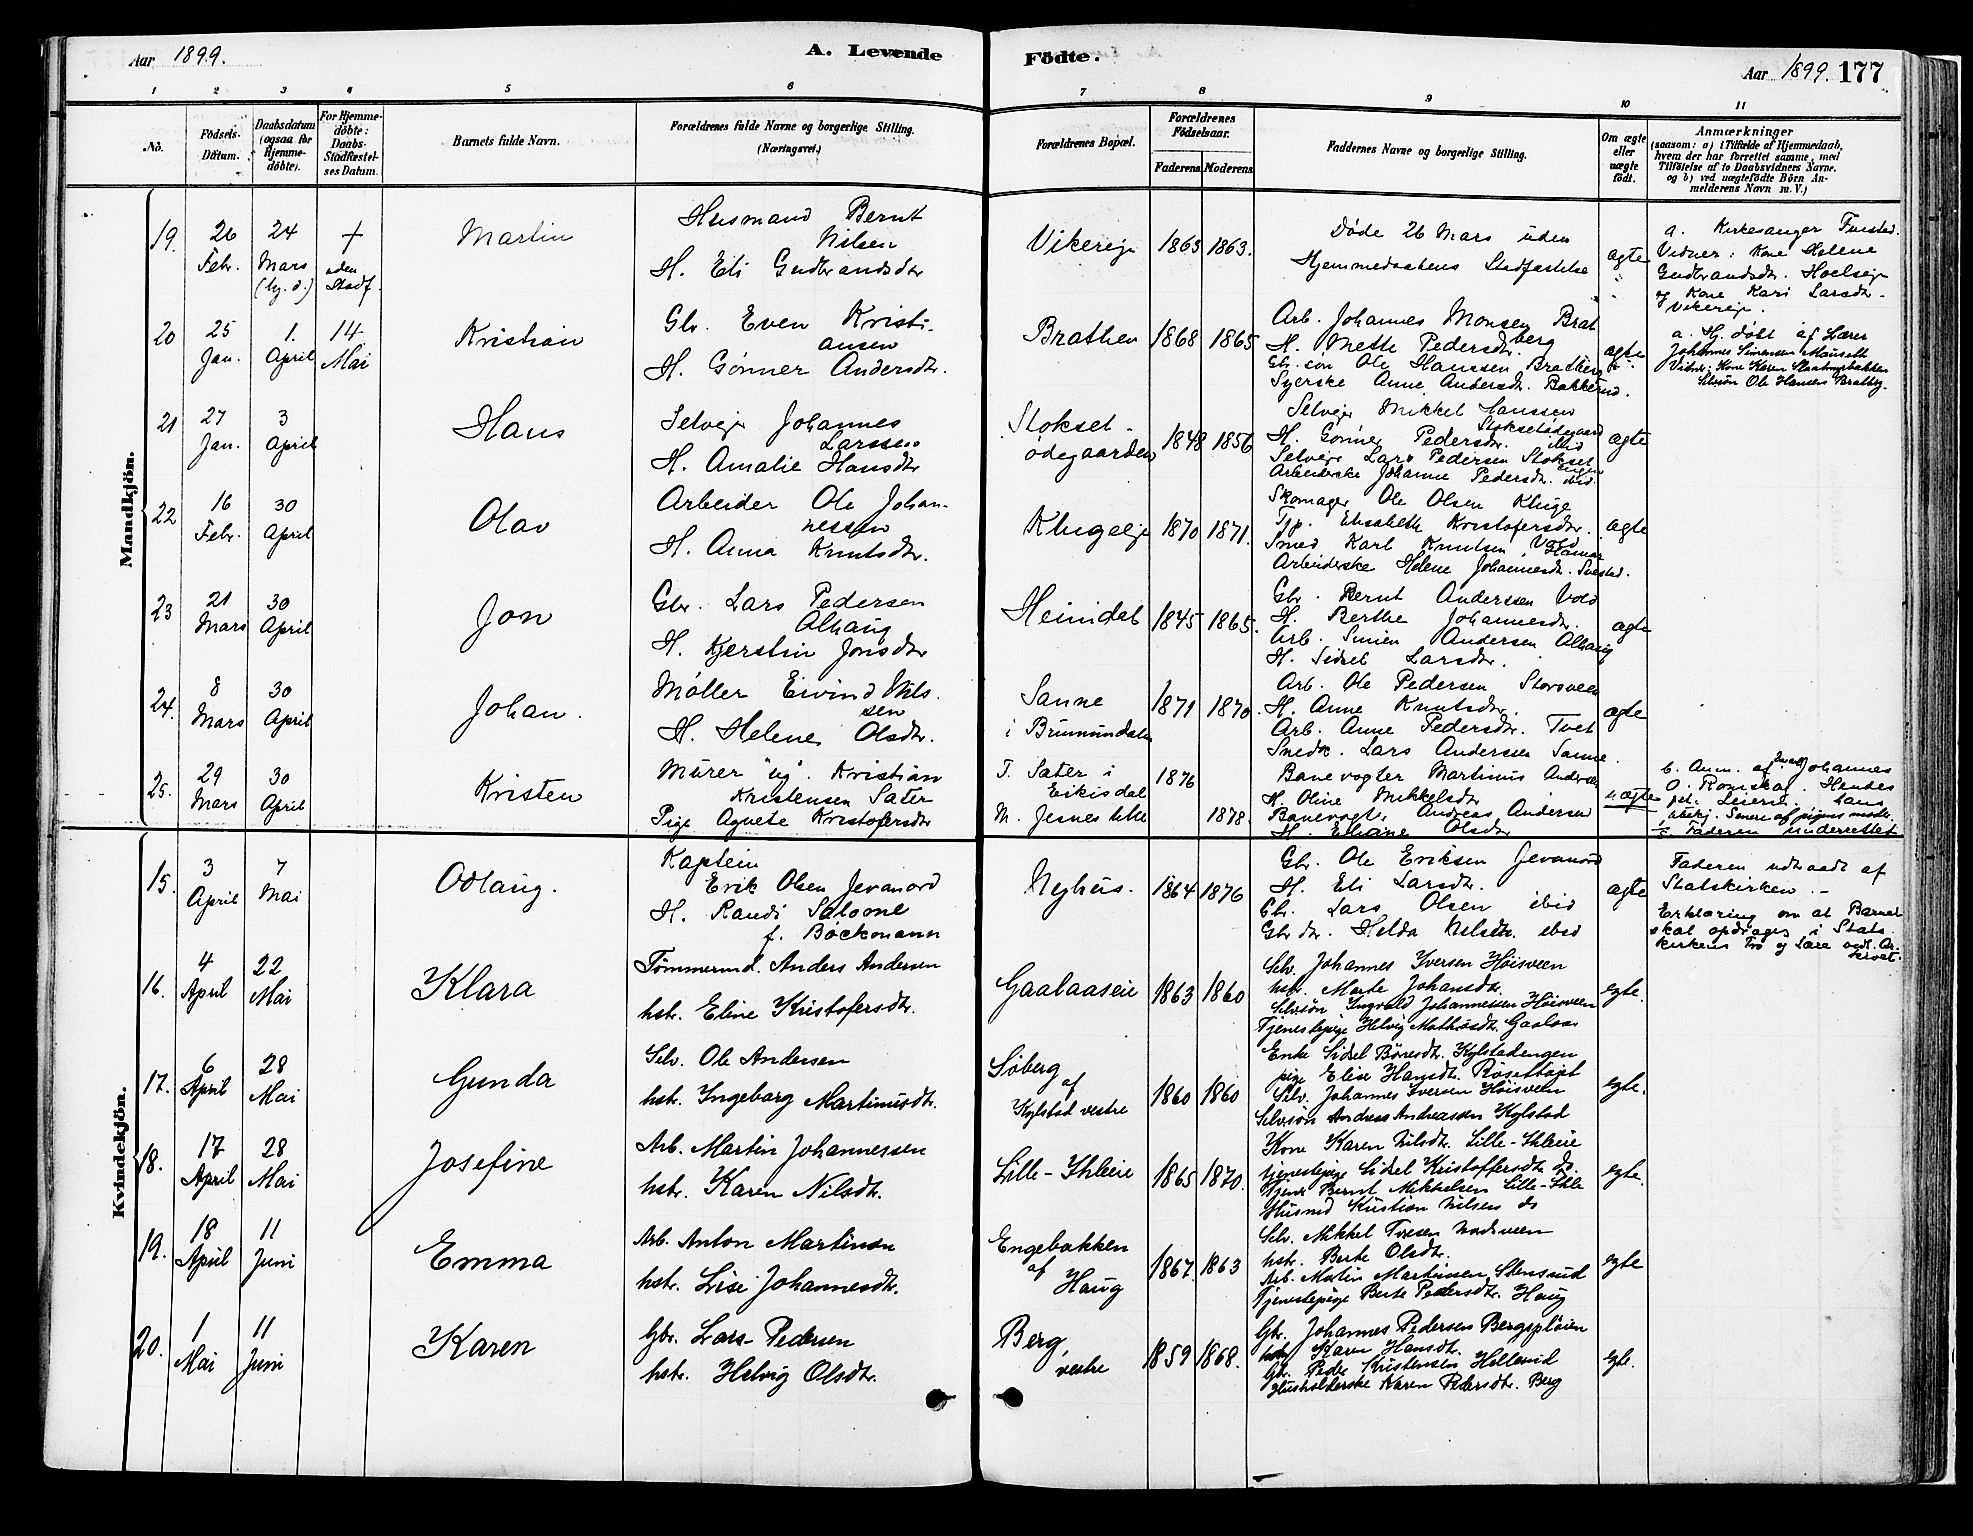 Aar 1899.
A. Levende
Födte.
Aar 1899. 177
1 2 3 4 5 6 7 8 9 10 11
No.
Födsels-Datum.
Daabsdatum (ogsaa for Hjemme-döbte).
For Hjemme-döbte: Daabs-Stadfæstel-ses Datum.
Barnets fulde Navn.
Forældrenes fulde Navne og borgerlige Stilling. (Næringsvei.)
Forældrenes Bopæl.
Forældrenes Födselsaar.
Faderens Moderens
Faddernes Navne og borgerlige Stilling.
Om ægte eller uægte födt.
Anmærkninger
(saasom: a) i Tilfælde af Hjemmedaab,
hvem der har forrettet samme, med
Tilföielse af to Daabsvidners Navne.
og b) ved uægtefödte Börn An-
melderens Navn m. V.)
Mandkjön.
19. 26 Febr. 24 Mars (hj.d.) + uden Stadf.
Martin
Husmand Bernt
Nilsen
H. Eli Gudbrandsdtr
Vikereje 1863 1863.
Døde 26 Mars uden
Hjemmedaabens Stadfæstelse
ægte
a. Kirkesanger
Vidner: Kone Helene
Gudbrandsdtr. Hoelseje
og Kone Kari Larsdtr.
Vikereje.
20 25 Jan. 1. April 14 Mai
Kristian
Gbr. Even Kristi-
ansen
H. Gønner Andersdtr.
Brathen 1868 1865
Arb. Johannes Monsen Brat
berg
H. Mette Pedersdtr.
Gbr. søn Ole Hanssen Bradberg
Syerske Anne Andersdtr. Bakkerud.
ægte
a. Hj. døbt af Lærer
Johannes Simensen
Vidner: Kone Karen
Selvsøn Ole Hansen Bratbrg.
21 27 Jan. 3 April
Hans
Selvejer Johannes
Larssen
H. Amalie Hansdtr
Stokset-
ødegaarden 1848 1856
Selvejer Mikkel Hanssen
Stoksetødegaard
H. Gønner Pedersdtr. ibid
Selvejer Lars Pedersen Stokset
engen
Arbeiderske Johanne Pedersdtr. ibid.
ægte
22 16 Febr. 30 April
Olav
Arbeider Ole Johan-
nessen
H. Anna Knutsdtr.
Klugeeje 1870 1871.
Skomager Ole Olsen Kluge
Tjp. Elisabeth Kristofersdtr.
Smed Karl Knutsen Vold
Hamar
Arbeiderske Helene Johannesdtr.
ægte
23 21 Mars 30 April
Jon
Gbr. Lars Pedersen
Alhaug
H. Kjerstin Jonsdtr
Heimdal 1845 1865.
Gbr. Bernt Anderssen Vold
H. Berthe Johannesdtr.
Arb. Simen Andersen Alhaug
H. Sidsel Larsdtr.
ægte
24. 8 Mars 30 April
Johan.
Møller Eivind Nils-
sen
H. Helene Olsdtr.
Sanne
i Brumundalen 1871 1870.
Arb. Ole Pedersen Storsveen
H. Anne Knutsdtr.
Arb. Anne Pedersdtr. Tvet
Snedk. Lars Anderssen Sanne.
ægte
25. 29 Mars 30 April
Kristen
Murer "ug". Kristian
Kristensen Sater
Pige Agnete Kristofersdtr
F. Sater i
Eikisdal 1876
M. Jesnes Lille 1878.
Banevogter Martinus
H. Oline Mikkelsdtr
Banevogter Andreas Andersen
H. Eliane Olsdtr
u. ægte
b. Anm. af Johannes
O. Romskog. Hendes
Faderen underrettet
Kvindekjön.
15. 3 April 7 Mai
Odlaug.
Kaptein
Erik Olsen Jevanord
H. Randi Salome
f. Bøckmann
Nyhus. 1864 1876
Gbr. Ole Eriksen Jevanord
H. Eli Larsdtr.
Gbr. Lars Olsen ibid
Gbr dtr. Helda Nilsdtr. ibid
ægte
Faderen udtraadt af
Statskirken.-
Erklæring om at Barnet
skal opdrages i Stats
kirkens Tro og Lære vedl. Ar-
kivet.
16. 4 April 22 Mai
Klara
Tømmermd. Anders Andersen
hstr. Eline Kristofersdtr.
Gaalaaseie 1863 1860
Selv. Johannes Iversen Høisveen
hstr. Marte Johansdtr.
Selvsøn Ingvald Johannessen Høisveen
Tjenestepige Helvig Mathiasdtr. Gaalaas
egte.
17. 6 April 28 Mai
Gunda
Selv. Ole Andersen
hstr. Ingeborg Martinusdtr.
Søberg
af
Kylstad vestre 1860 1860
Enke Sidsel Børesdtr. Kylstadengen
pige Elise Hansdtr.
Selv. Johannes Iversen Høisveen
Selvsøn Andreas Andreassen Kylstad
egte.
18. 17 April 28 Mai
Josefine
Arb. Martin Johannessen
hstr. Karen Nilsdtr.
Lille-Ihleie 1865 1870.
Kone Karen Nilsdtr. Lille-Ihleie
tjenestepige Sidsel Kristoffersdtr. do.
Tjener Bernt Mikkelsen Lille-Ihle
Husmd Kristian Nilsen do
egte.
19. 18 April 11 Juni
Emma
Arb. Anton Martinsen
hstr. Lise Johannesdtr.
Engebakken
af
Haug 1867. 1863
Selv. Mikkel Iversen
hstr. Berte Olsdtr.
Arb. Martin Martinsen Stensrud
Tjenestepige Berte Pedersdtr. Haug
egte
20. 1 Mai 11 Juni
Karen
Gbr. Lars Pedersen
hstr. Helvig Olsdtr.
Berg,
vestre 1859 1868.
Gbr. Johannes Pedersen Bergspløien
hstr Karen Hansdtr.
Gbr. Peder Kristensen Hellerud
Husholderske Karen Pedersdtr. Berg
egte.